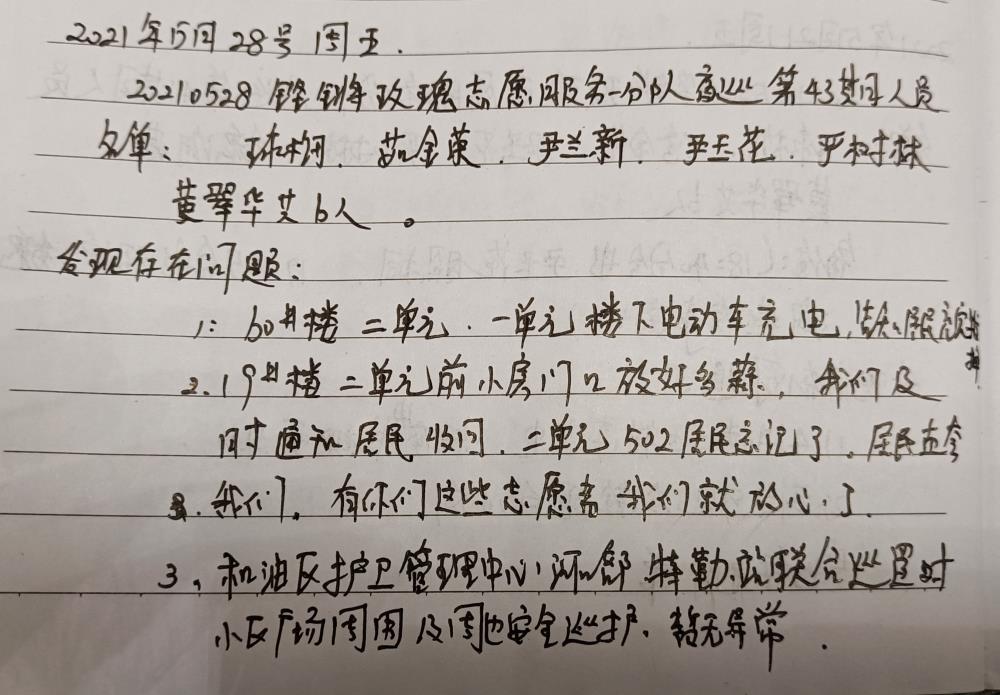 2021年5月28号 周五.
20210528 铿锵玫瑰志愿服务一分队夜巡第43期人员
名单: 茹金英. 尹兰新. 尹玉花. 严树林
黄翠华共6人。
发现存在问题:
1: 60#楼二单元.一单元楼下电动车充电,
2.19#楼二单元前小房门口放好多蒜. 我们及
时通知居民收回.二单元502居民忘记了.居民直夸
我们.有你们这些志愿者我们就放心了.
3,和油区护卫管理中心河部特勤站联合巡逻对
小区广场周围及周边安全巡护.暂无异常.